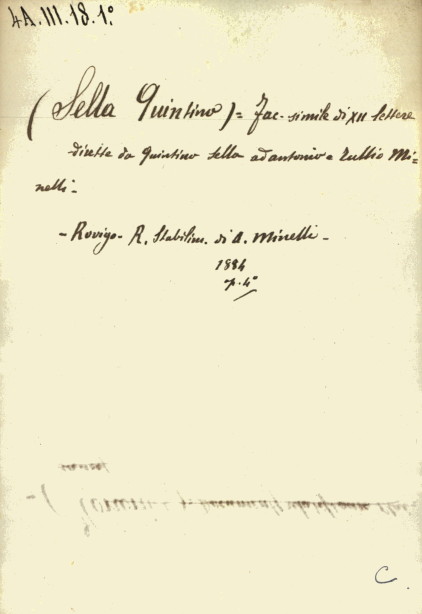 4A.III.18.1º
(Sella Quintino) = Fac-simile di XII lettere
dirette da Quintino Sella ad Antonio e Tullio Mi=
nelli -
- Rovigo - R. Stabilim. di A. Minelli -
1884
p. 4º
C.